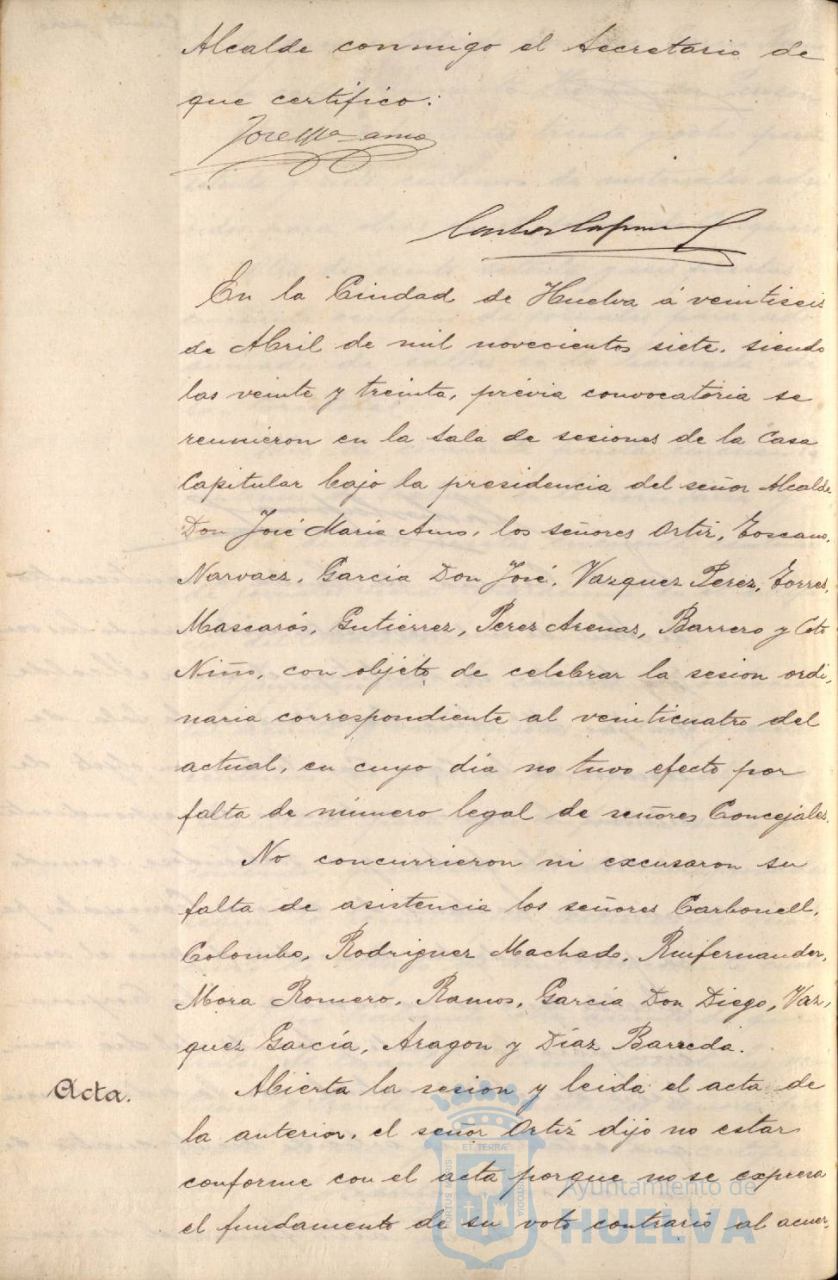 Alcalde conmigo el Secretario de
que certifico:
José Mª Amo
En la Ciudad de Huelva á veintiseis
de Abril de mil novecientos siete. siendo
las veinte y treinta, prévia convocatoria se
reunieron en la sala de sesiones de la Casa
Capitular bajo la presidencia del señor Alcalde
Don José Maria Amo, los señores Ortiz, Toscano,
Narvaez, Garcia Don José, Vazquez Perez, Torres,
Mascarós, Gutierrez, Perez Arenas, Barrero y Coto
Niño, con objeto de celebrar la sesion ordi,
naria correspondiente al veinticuatro del
actual, en cuyo dia no tuvo efecto por
falta de número legal de señores Concejales.
No concurrieron ni excusaron su
falta de asistencia los señores Carbonell,
Colombo, Rodriguez Machado, Ruifernandez,
Mora Romero, Ramos, García Don Diego, Vaz,
quez García, Aragon y Díaz Barreda.
Acta.
Abierta la sesion y leida el acta de
la anterior, el señor Ortiz dijo no estar
conforme con el acta porque no se expresa
el fundamento de su voto contrario al acuer,
Ayuntamiento de
HUELVA